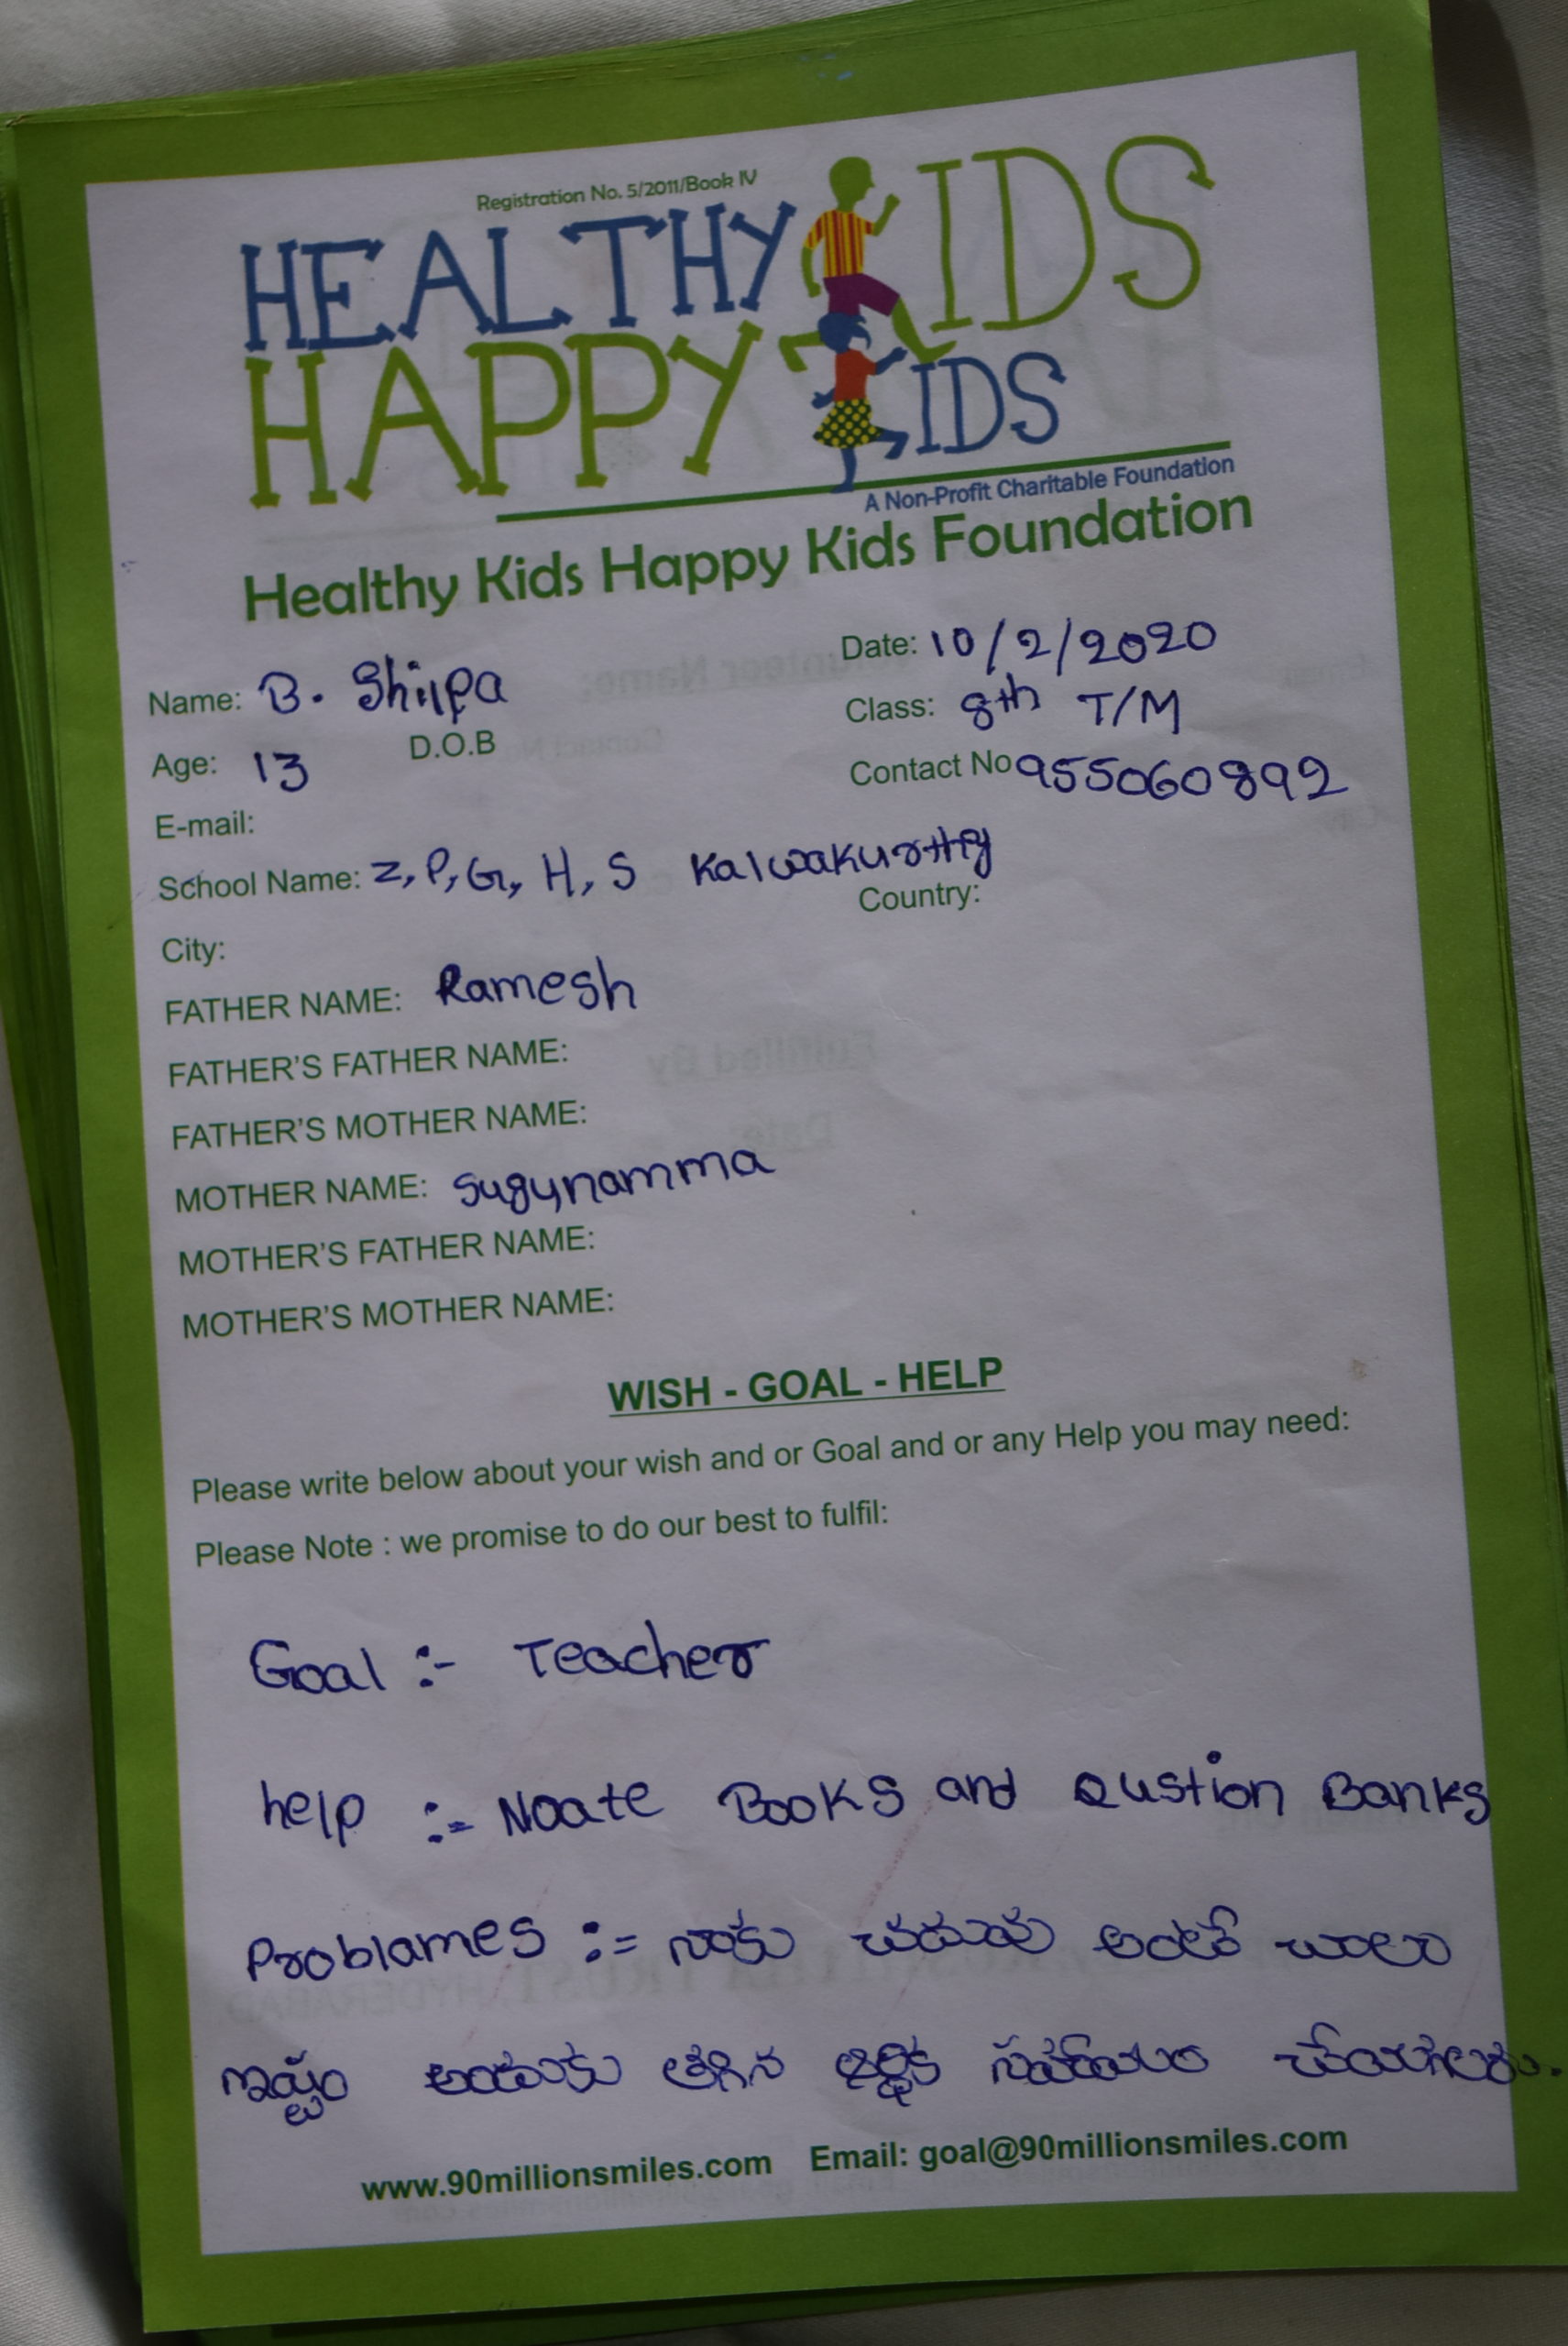 Registration No. 5/2011/Book IV
HEALTHY KIDS
HAPPY KIDS
A Non-Profit Charitable Foundation
Healthy Kids Happy Kids Foundation
Name: B. Shilpa Date: 10/2/2020
Age: 13 D.O.B Class: 8th T/M
E-mail: Contact No 955060892
School Name: Z, P, G, H, S Kalwakurthy
City: Country:
FATHER NAME: Ramesh
FATHER'S FATHER NAME:
FATHER'S MOTHER NAME:
MOTHER NAME: Sugunamma
MOTHER'S FATHER NAME:
MOTHER'S MOTHER NAME:
WISH - GOAL - HELP
Please write below about your wish and or Goal and or any Help you may need:
Please Note : we promise to do our best to fulfil:
Goal :- Teacher
help :- Noate Books and Qustion Banks
Problames :- నాకు చదువు అంటే చాలా
ఇష్టం అందుకు తగిన ఆర్థిక సహాయం చేయగలరు.
www.90millionsmiles.com Email: goal@90millionsmiles.com